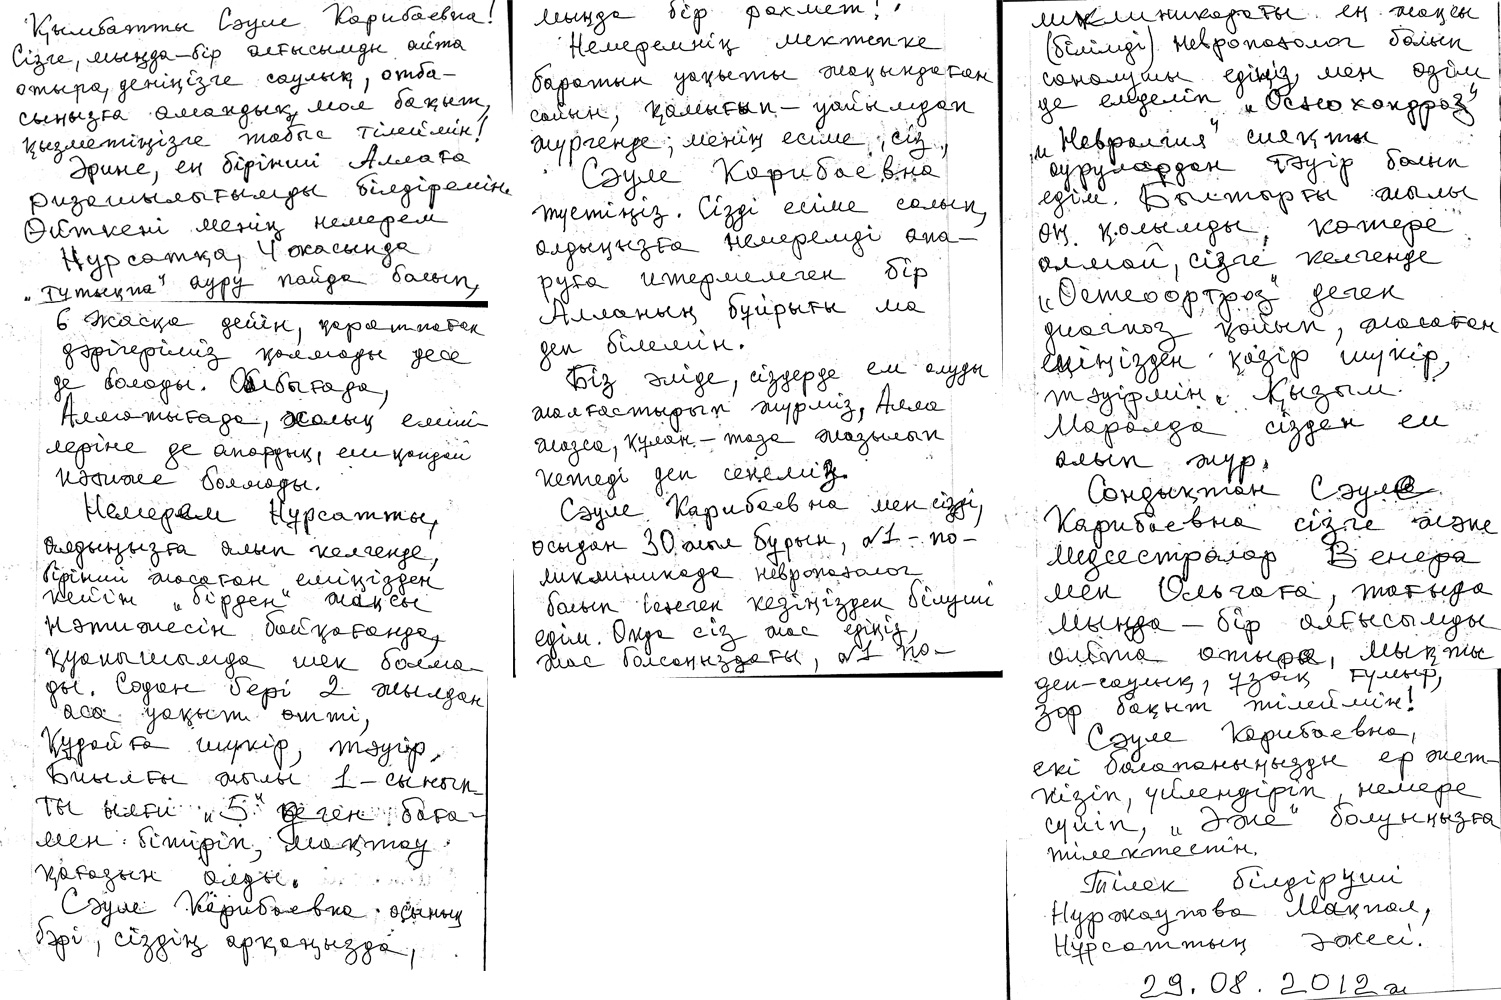 Қымбатты Сәуле Карибаевна!
Сізге, мыңда-бір алғысымды айта
отыра, деніңізге саулық, отба-
сыңызға амандық, мол бақыт,
қызметіңізге табыс тілеймін!
Әрине, ең бірінші Аллаға
ризашылығымды білдіремін.
Өйткені менің немерем
Нұрсатқа, 4 жасында
„тұтықпа" ауру пайда болып,
6 жасқа дейін, қаратпаған
дәрігеріміз қалмады десе
де болады. Обыбағада,
Алматығада, халық емші-
леріне де апардық, еш қандай
нәтиже болмады.
Немерем Нұрсатты,
алдыңызға алып келгенде,
бірінші жасаған еміңізден
кейін „бірден" жақсы
нәтижесін байқағанда,
қуанышымда шек болма-
ды. Содан бері 2 жылдан
аса уақыт өтті,
Құдайға шүкір, тәуір.
Биылғы жылы 1-сынып-
ты ылғи „5" деген баға-
мен бітіріп, мақтау
қағазын алды.
Сәуле Карибаевна осының
бәрі, сіздің арқаңызда,
мыңда бір рахмет!
Немеремнің мектепке
баратын уақыты жақындаған
сайын, қамығып-уайымдап
жүргенде, менің есіме, сіз,
Сәуле Карибаевна
түстіңіз. Сізді есіме салып,
алдыңызға немеремді апа-
руға итермелеген бір
Алланың бұйрығы ма
деп білемін.
Біз әліде, сіздерде ем алуды
жалғастырып жүрміз, Алла
жазса, құлан-таза жазылып
кетеді деп сенеміз.
Сәуле Карибаевна мен сізді,
осыдан 30 жыл бұрын, №1-по-
ликлиникада невропатолог
болып істеген кезіңізден білуші
едім. Онда сіз жас едіңіз,
жас болсаңыздағы, №1 по-
ликлиникадағы ең жақсы
(білімді) невропатолог болып
саналушы едіңіз, мен өзім
де емделіп „Остеохондроз"
„Невралгия" сияқты
аурулардан тәуір болып
едім. Былтырғы жылы
оң қолымды, көтере
алмай, сізге келгенде
„Остеоартроз" деген
диагноз қойып, жасаған
еміңізден қазір шүкір,
тәуірмін. Қызым
Маралда сізден ем
алып жүр.
Сондықтан Сәуле
Карибаевна сізге және
медсестралар Венера
мен Ольгаға, тағыда
мыңда-бір алғысымды
айта отыра, мықты
ден-саулық, ұзақ ғұмыр,
зор бақыт тілеймін!
Сәуле Карибаевна,
екі балапаныңызды ер жет-
кізіп, үйлендіріп, немере
сүйіп, „Әже" болуыңызға
тілектеспін.
Тілек білдіруші
Нуржаупова Мақпал,
Нұрсаттың әжесі.
29.08.2012ж